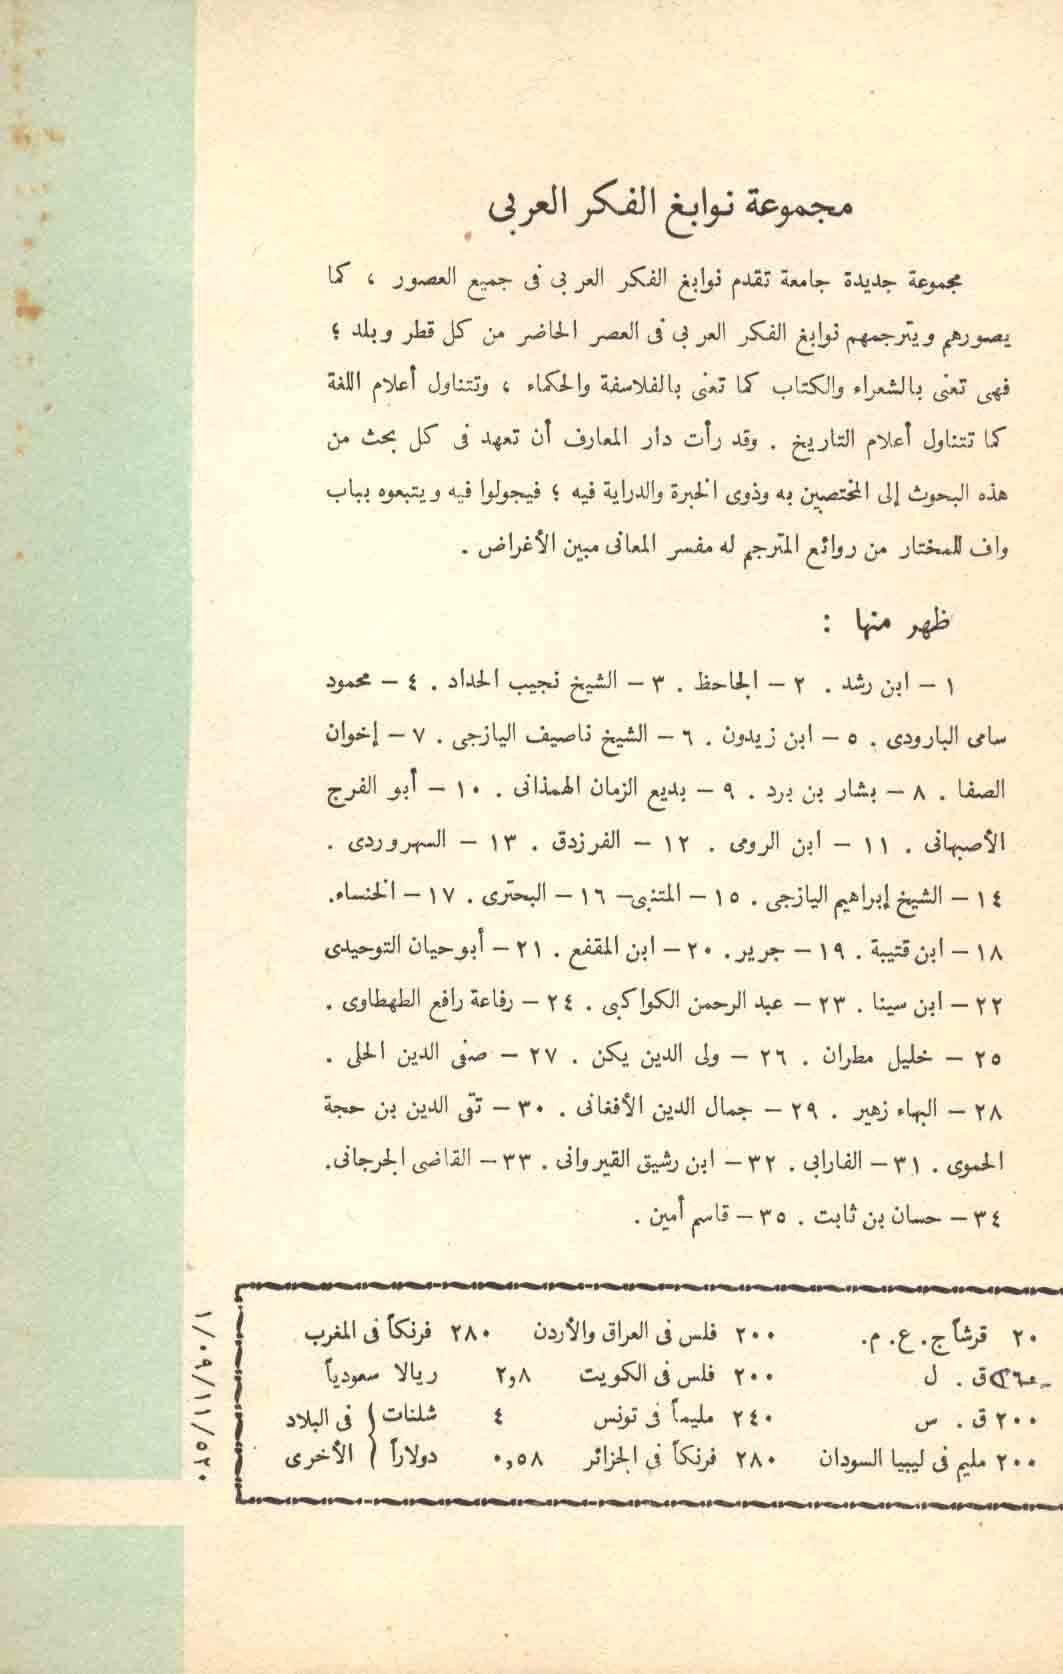 مجموعة نوابغ الفكر العربى
مجموعة جديدة جامعة تقدم نوابغ الفكر العربى فى جميع العصور ، كما
يصورهم ويترجمهم نوابغ الفكر العربى فى العصر الحاضر من كل قطر وبلد ؛
فهى تعنى بالشعراء والكتاب كما تعنى بالفلاسفة والحكماء ، وتتناول أعلام اللغة
كما تتناول أعلام التاريخ . وقد رأت دار المعارف أن تعهد فى كل بحث من
هذه البحوث إلى المختصين به وذوى الخبرة والدراية فيه ؛ فيجولوا فيه ويتبعوه بباب
واف للمختار من روائع المترجم له مفسر المعانى مبين الأغراض .
ظهر منها :
١ – ابن رشد . ٢ – الجاحظ . ٣ – الشيخ نجيب الحداد . ٤ – محمود
سامى البارودى . ٥ – ابن زيدون . ٦ – الشيخ ناصيف اليازجى . ٧ – إخوان
الصفا . ٨ – بشار بن برد . ٩ – بديع الزمان الهمذانى . ١٠ – أبو الفرج
الأصبهانى . ١١ – ابن الرومى . ١٢ – الفرزدق . ١٣ – السهروردى .
١٤ – الشيخ إبراهيم اليازجى . ١٥ – المتنبى – ١٦ – البحترى . ١٧ – الخنساء.
١٨ – ابن قتيبة . ١٩ – جرير . ٢٠ – ابن المقفع . ٢١ – أبو حيان التوحيدى
٢٢ – ابن سينا . ٢٣ – عبد الرحمن الكواكبى . ٢٤ – رفاعة رافع الطهطاوى .
٢٥ – خليل مطران . ٢٦ – ولى الدين يكن . ٢٧ – صفى الدين الحلى .
٢٨ – البهاء زهير . ٢٩ – جمال الدين الأفغانى . ٣٠ – تقى الدين بن حجة
الحموى . ٣١ – الفارابى . ٣٢ – ابن رشيق القيروانى . ٣٣ – القاضى الجرجانى.
٣٤ – حسان بن ثابت . ٣٥ – قاسم أمين .
٢٠ قرشاً ج . ع . م. ٢٠٠ فلس فى العراق والأردن ٢٨٠ فرنكاً فى المغرب
ق . ل ٢٠٠ فلس فى الكويت ٢,٨ ريالا سعودياً
٢٠٠ ق . س ٢٤٠ مليماً فى تونس ٤ شلنات } فى البلاد
٢٠٠ مليم فى ليبيا السودان ٢٨٠ فرنكاً فى الجزائر ٠,٥٨ دولاراً } الأخرى
١/٠٩/١١/٥٢٠